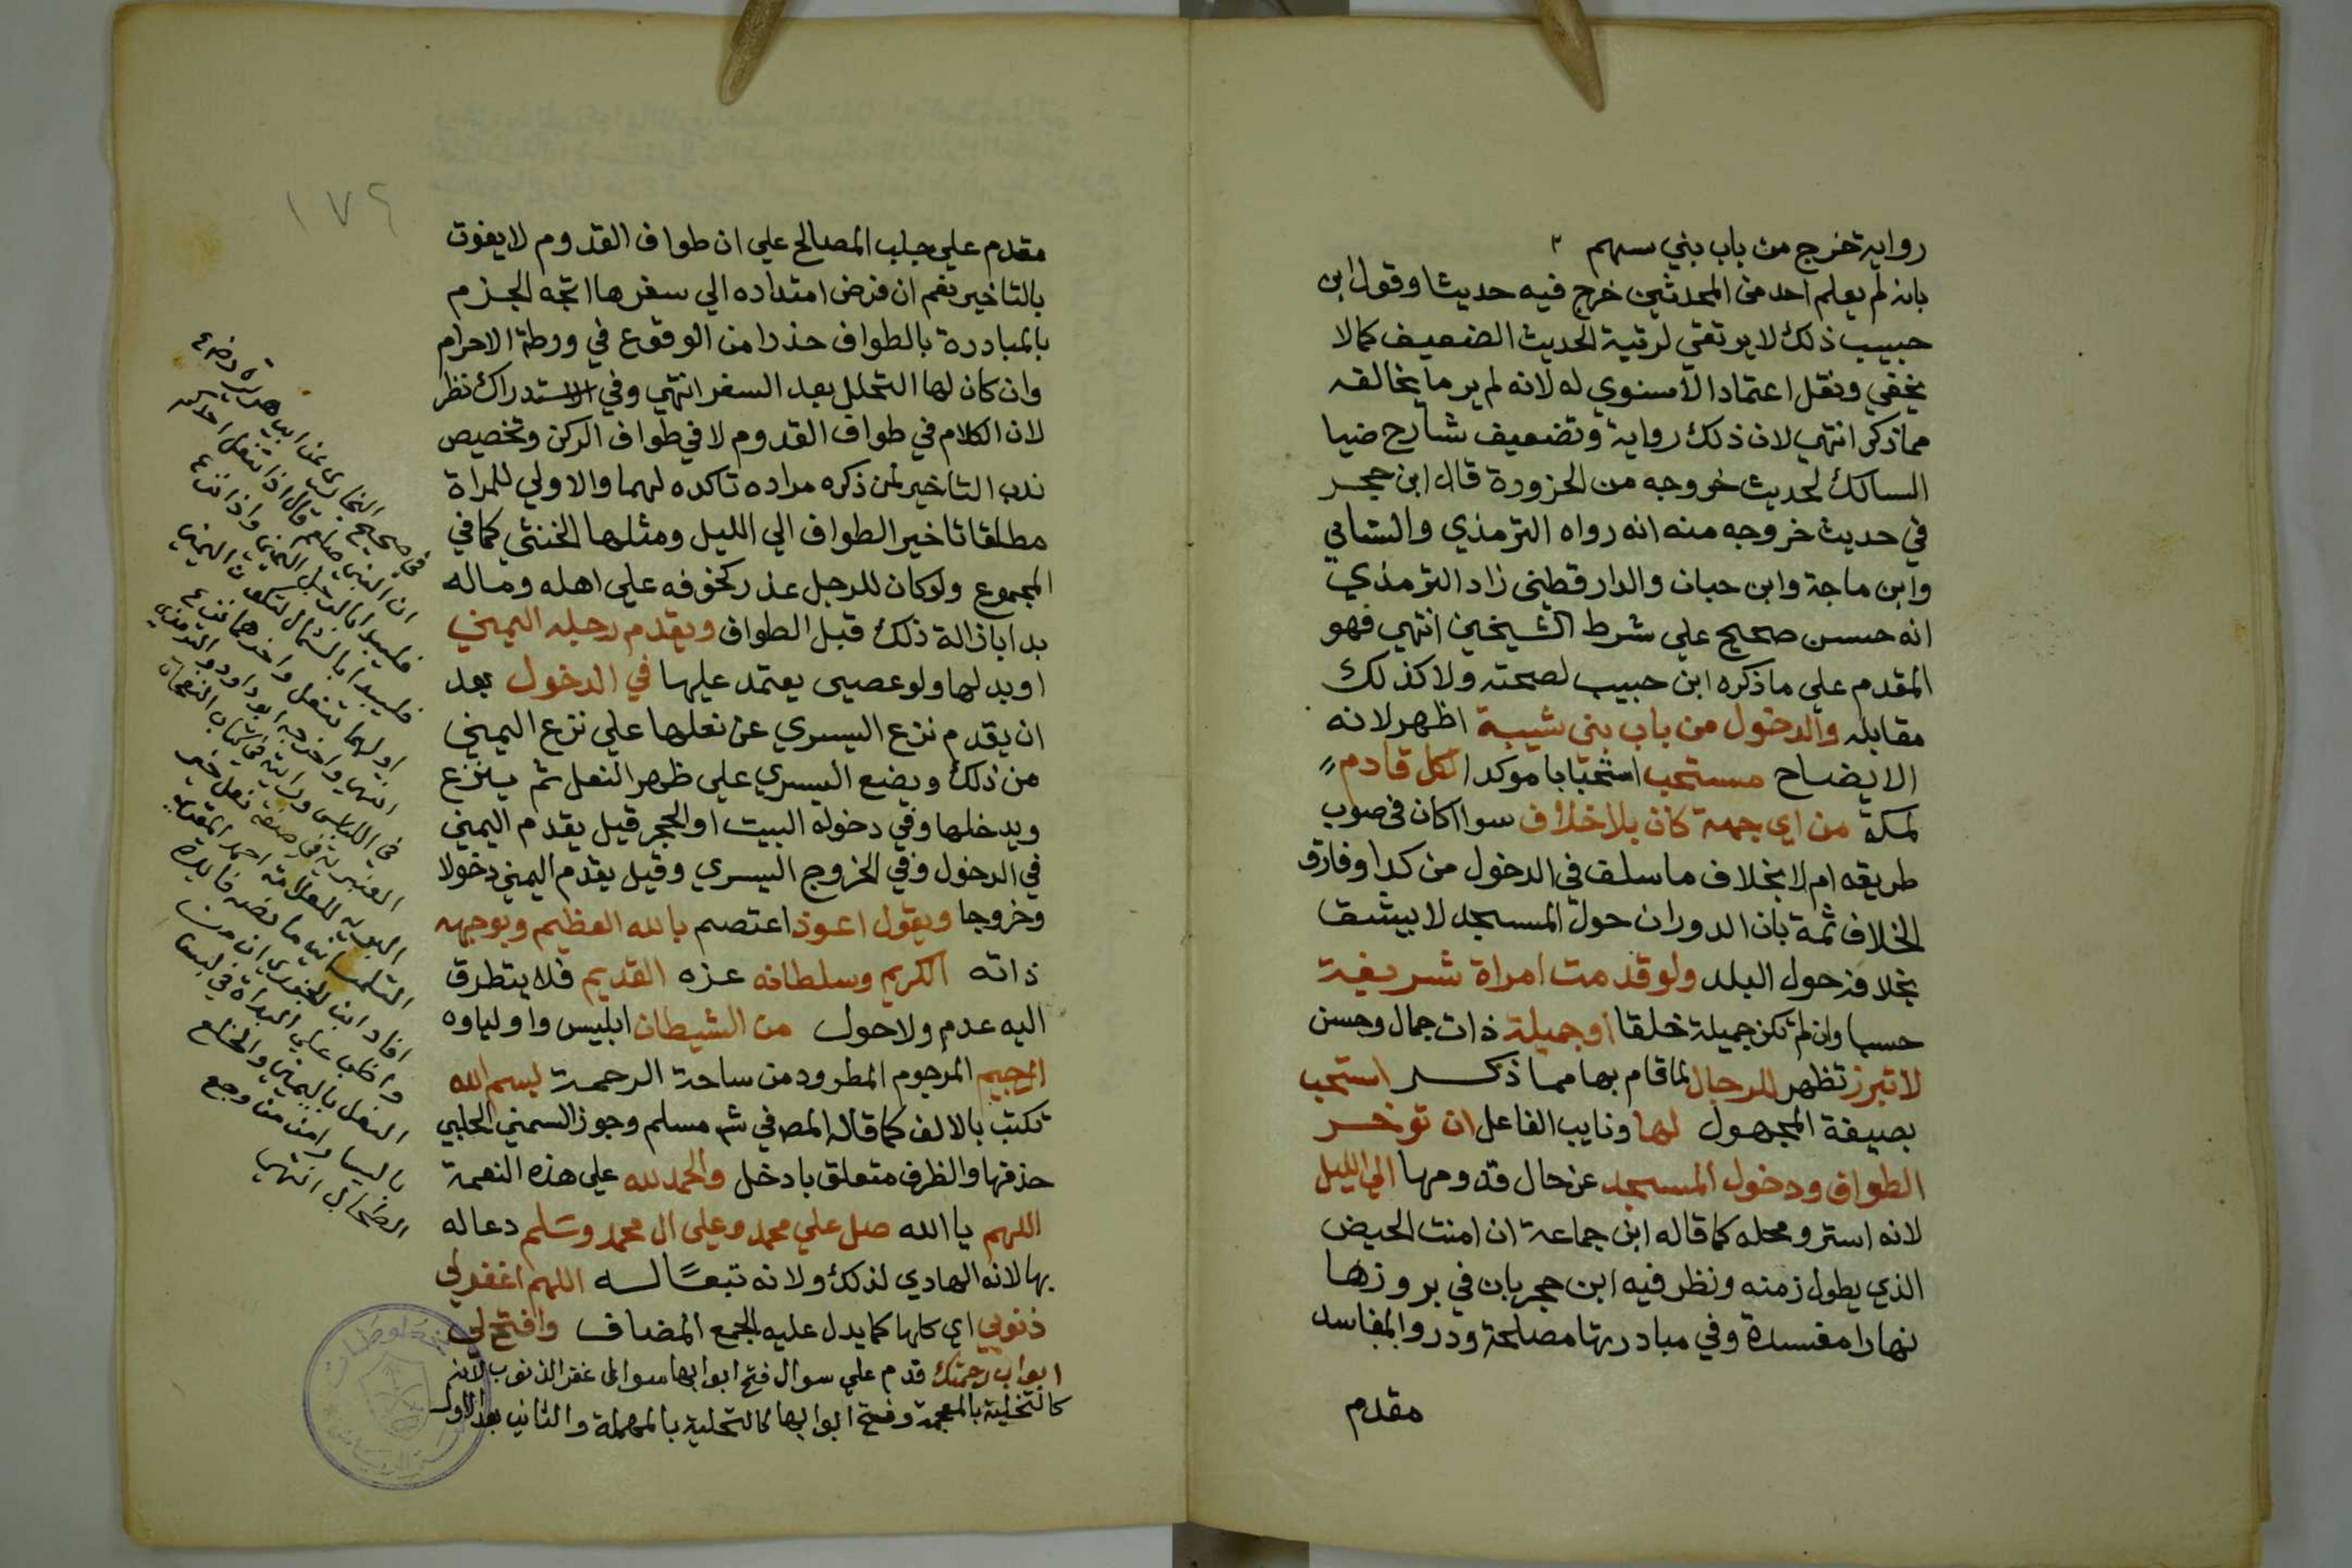 رواية خرج من باب بني سهم
بانه لم يعلم احد من المحدثين خرج فيه حديثا وقول ابن
حبيب ذلك لا يرتقي لرتبة الحديث الضعيف كما لا
يخفي ونقل اعتماد الاسنوي له لانه لم ير ما يخالفه
مما ذكر انتهي لان ذلك رواية وتضعيف شارح ضيا
السالك لحديث خروجه من الحزورة قال ابن حجر
في حديث خروجه منه انه رواه الترمذي والنساني
وابن ماجة وابن حبان والدارقطني زاد الترمذي
انه حسن صحيح علي شرط الشيخين انتهي فهو
المقدم علي ما ذكره ابن حبيب لصحته ولا كذلك
مقابله والدخول من باب بني شيبة اظهر لانه
الايضاح مستحب استحبابا موكدا لكل قادم
لمكة من اي جهة كان بلا خلاف سوا اكان في صوب
طريقه ام لا بخلاف ما سلف في الدخول من كدا وفارق
الخلاف ثمة بان الدوران حول المسجد لا يشق
بخلافه حول البلد ولو قدمت امراة شريفة
حسبا وان لم تكن جميلة خلقا او جميلة ذات جمال وحسن
لا تبرز تظهر للرجال لما قام بها مما ذكر استحب
بصيغة المجهول لها ونايب الفاعل ان توخر
الطواف ودخول المسجد عن حال قدومها الي الليل
لانه استر ومحله كما قاله ابن جماعة ان امنت الحيض
الذي يطول زمنه ونظر فيه ابن حجر بان في بروزها
نهارا مفسدة وفي مبادرتها مصلحة ودرو المفاسد
مقدم
١٧٢
مقدم علي جلب المصالح علي ان طواف القدوم لا يفوت
بالتاخير نعم ان فرض امتداده الي سفرها اتجه الجزم
بالمبادرة بالطواف حذرا من الوقوع في ورطة الاحرام
وان كان لها التحلل بعد السفر انتهي وفي الاستدراك نظر
لان الكلام في طواف القدوم لا في طواف الركن وتخصيص
ندب التاخير لمن ذكره مراده تاكده لهما والاولي للمراة
مطلقا تاخير الطواف الي الليل ومثلها الخنثي كما في
المجموع ولو كان للرجل عذر كخوفه علي اهله وماله
بدا باذالة ذلك قبل الطواف ويقدم رجله اليمني
او بدلها ولو عصي يعتمد عليها في الدخول بعد
ان يقدم نزع اليسري عن نعلها علي نزع اليمني
من ذلك ويضع اليسري علي ظهر النعل ثم ينزع
ويدخلها وفي دخوله البيت او الحجر قيل يقدم اليمني
في الدخول وفي الخروج اليسري وقيل يقدم اليمني دخولا
وخروجا ويقول اعوذ اعتصم بالله العظيم وبوجهه
ذاته الكريم وسلطانه عزه القديم فلا يتطرق
اليه عدم ولا حول من الشيطان ابليس واولياوه
الرجيم المرجوم المطرود من ساحة الرحمة بسم الله
تكتب بالالف كما قاله المصـ في شر مسلم وجوز السمني الحلبي
حذفها والظرف متعلق بادخل والحمد لله علي هذه النعمة
اللهم يا الله صل علي محمد وعلي ال محمد وسلم دعا له
بها لانه الهادي لذلك ولانه تبعا له اللهم اغفر لي
ذنوبي اي كلها كما يدل عليه الجمع المضاف وافتح لي
ابواب رحمتك قدم علي سوال فتح ابوابها سوال غفر الذنوب لانه
كالتخلية بالمعجمة وفتح ابوابها كالتحلية بالمهملة والثاني بعد الاول
في صحيح البخاري عن ابي هريرة رضع
ان النبي صلعم قال اذا انتعل احدكم
فليبدا باليمين واذا نزع
فليبدا بالشمال لتكون اليمني
اولهما تنعل واخرهما تنزع
انتهي واخرجه ابو داود والترمذي
في اللباس ورايت في كتاب النفحات
العنبرية في صفة نعل خير
البرية للعلامة احمد المقري
التلمساني ما نصه فايدة
افاد ابن الجوزي ان من
واظب علي البداة في لبس
النعل باليمني والخلع
باليسار امن من وجع
الطحال انتهي